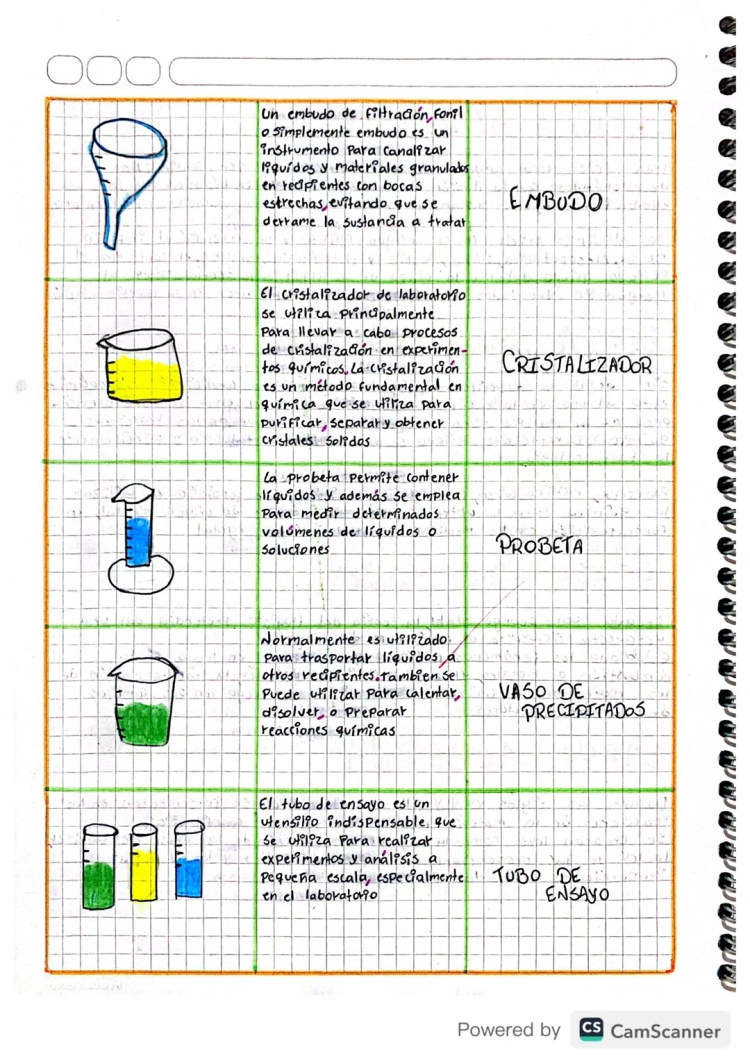 Un embudo de filtración, Fonil
o simplemente embudo es un
instrumento Para canalizar
líquidos y materiales granulados
en recipientes con bocas
estrechas, evitando que se
derrame la sustancia a tratar
EMBUDO
El cristalizador de laboratorio
se utiliza principalmente
Para llevar a cabo procesos
de cristalización en experimen-
tos químicos. La cristalización
es un método fundamental en
química que se utiliza para
purificar, separar y obtener
cristales solidos
CRISTALIZADOR
La probeta permite contener
líquidos y además se emplea
Para medir determinados
volúmenes de líquidos o
Soluciones
PROBETA
Normalmente es utilizado
Para trasportar líquidos, a
otros recipientes. Tambien se
Puede utilizar Para calentar,
disolver, o Preparar
reacciones químicas
VASO DE
PRECIPITADOS
El tubo de ensayo es un
utensilio indispensable, que
se utiliza Para realizar
experimentos y análisis a
Pequeña escala, especialmente
en el laboratorio
TUBO DE
ENSAYO
Powered by CS CamScanner